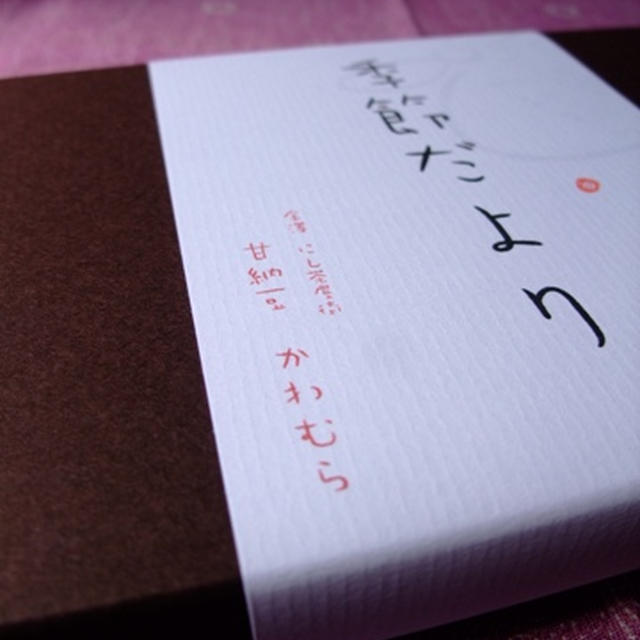 季節だより
にし茶屋街
甘納豆 かわむら